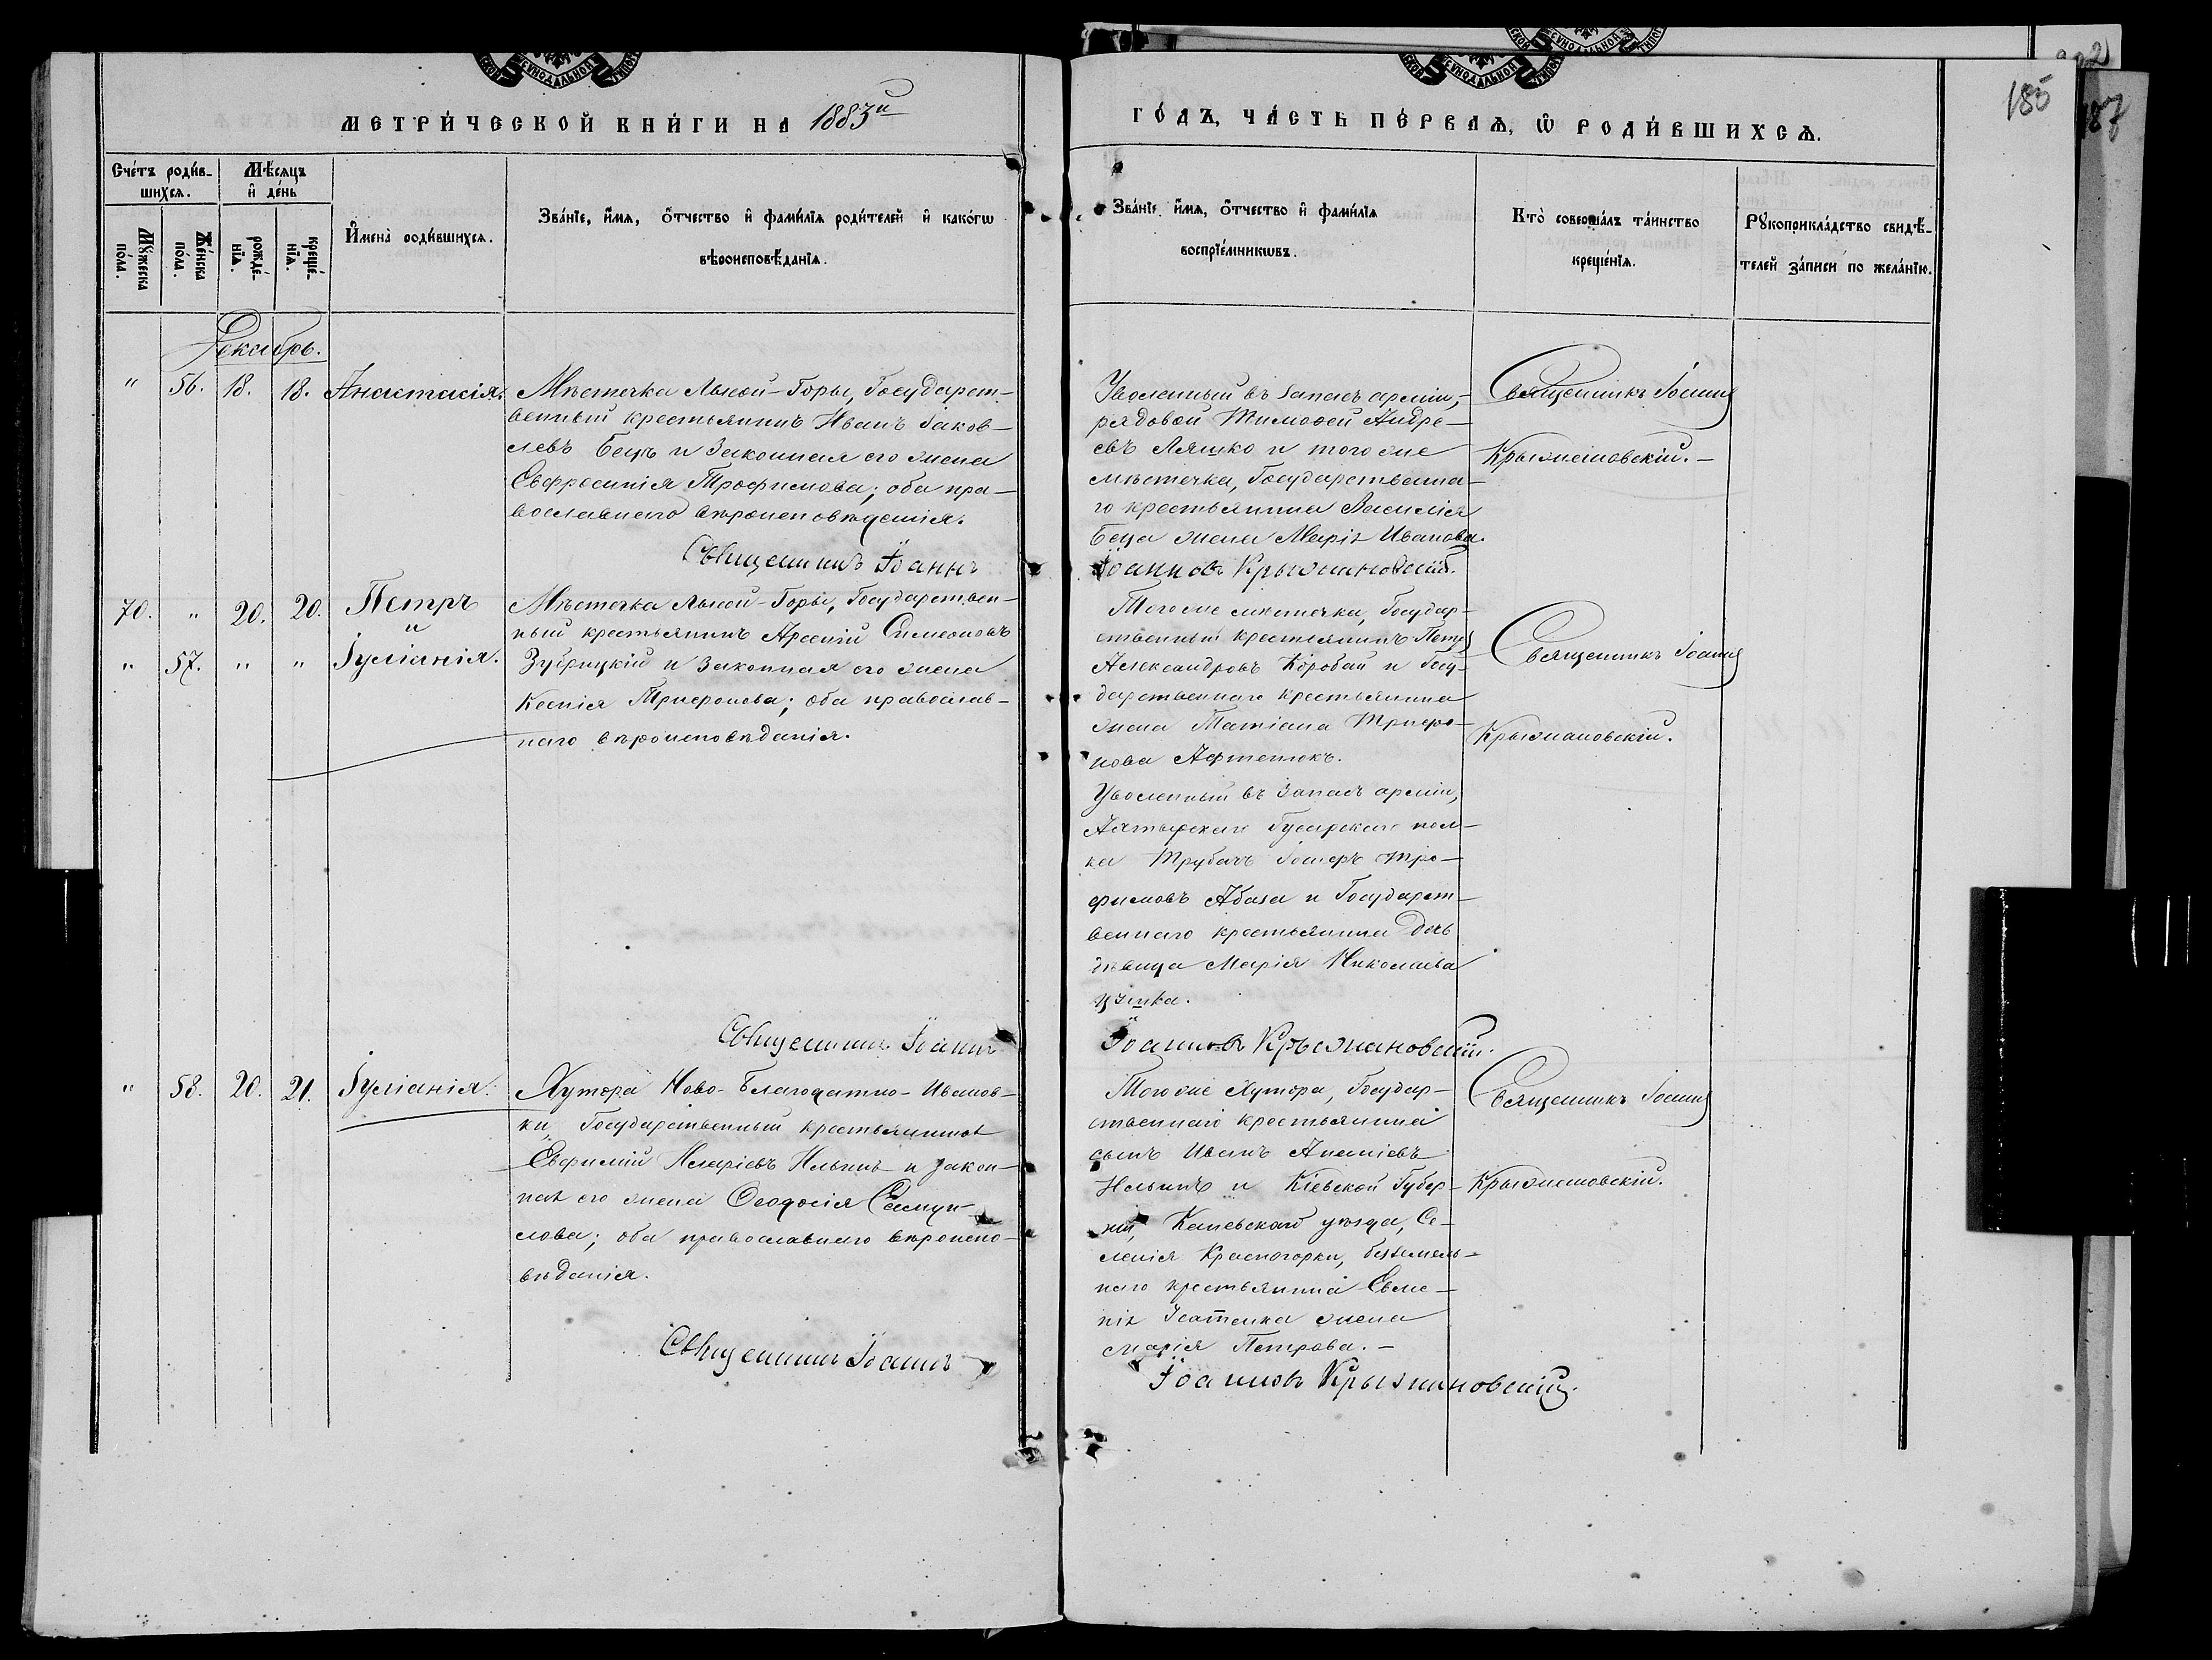 МЕТРИ́ЧЕСКОЙ КНИ́ГИ НА 1883й
ГО́ДЪ, ЧА́СТЬ ПЕ́РВАѦ, Ѡ РОДИ́ВШИХСѦ.
185
187
Сче́тъ роди́в-
шихсѧ.
Мѣ́сяцъ
и҆ де́нь
Мꙋ́жеска
по́ла.
Же́нска
по́ла.
рожде́-
нїѧ.
креще́-
нїѧ.
И҆мена̀ роди́вшихсѧ.
Зва́нїе, и҆́мѧ, ѻ҆́тчество и҆ фами́лїѧ роди́телей и҆ како́гѡ
вѣроисповѣ́данїѧ.
Зва́нїе, и҆́мѧ, ѻ҆́тчество и҆ фами́лїѧ
воспрїе́мникѡвъ.
Кто̀ соверша́лъ та́инство
креще́нїѧ.
Рꙋкоприкла́дство свидѣ́-
телей за́писи по жела́нїю.
Декабрь.
" 56. 18. 18. Анастасія.
Мѣстечка Лысой-Горы, Государст-
венный крестьянинъ Иванъ Іаков-
левъ Бецъ и Законная его жена
Евфросинія Трофимова; оба пра-
вославнаго вѣроисповѣданія.
Священникъ Іоаннъ
Уволенный въ запасъ арміи,
рядовой Тимофей Андре-
евъ Ляшко и того же
мѣстечка, Государственна-
го крестьянина Василія
Беца жена Марія Иванова.
Іоанновъ Крыжановскій.
Священникъ Іоаннъ
Крыжановскій.-
70. " 20. 20. Петръ
и
" 57. " " Іуліанія.
Мѣстечка Лысой-Горы, Государствен-
ный крестьянинъ Арсеній Симеоновъ
Зубрицкій и Законная его жена
Ксенія Трифонова; оба православ-
наго вѣроисповѣданія.
Священникъ Іоаннъ
Того же мѣстечка, Государ-
ственный крестьянинъ Петръ
Александровъ Коробай и Госу-
дарственнаго крестьянина
жена Татіана Трифо-
нова Афтенюкъ.
Уволенный въ запасъ арміи,
Ахтырскаго Гусарскаго пол-
ка Трубачъ Тро-
фимовъ Абаза и Государст-
веннаго крестьянина дочь
дѣвица Марія Николаева
Іоанновъ Крыжановскій.
Священникъ Іоаннъ
Крыжановскій.
" 58. 20. 21. Іуліанія.
Хутора Ново-Благодатно-Иванов-
ки, Государственный крестьянинъ
Евфимій Иларіевъ Ильинъ и закон-
ная его жена Ѳеодосія Самуи-
лова; оба православнаго вѣроиспо-
вѣданія.
Священникъ Іоаннъ
Того же Хутора, Государ-
ственнаго крестьянина
сынъ Иванъ Ананіевъ
Ильинъ и Кіевской Губер-
ніи, Каневскаго уѣзда, Се-
ленія Красногорки, безземель-
наго крестьянина Евме-
нія жена
Марія Петрова.-
Іоанновъ Крыжановскій.
Священникъ Іоаннъ
Крыжановскій.